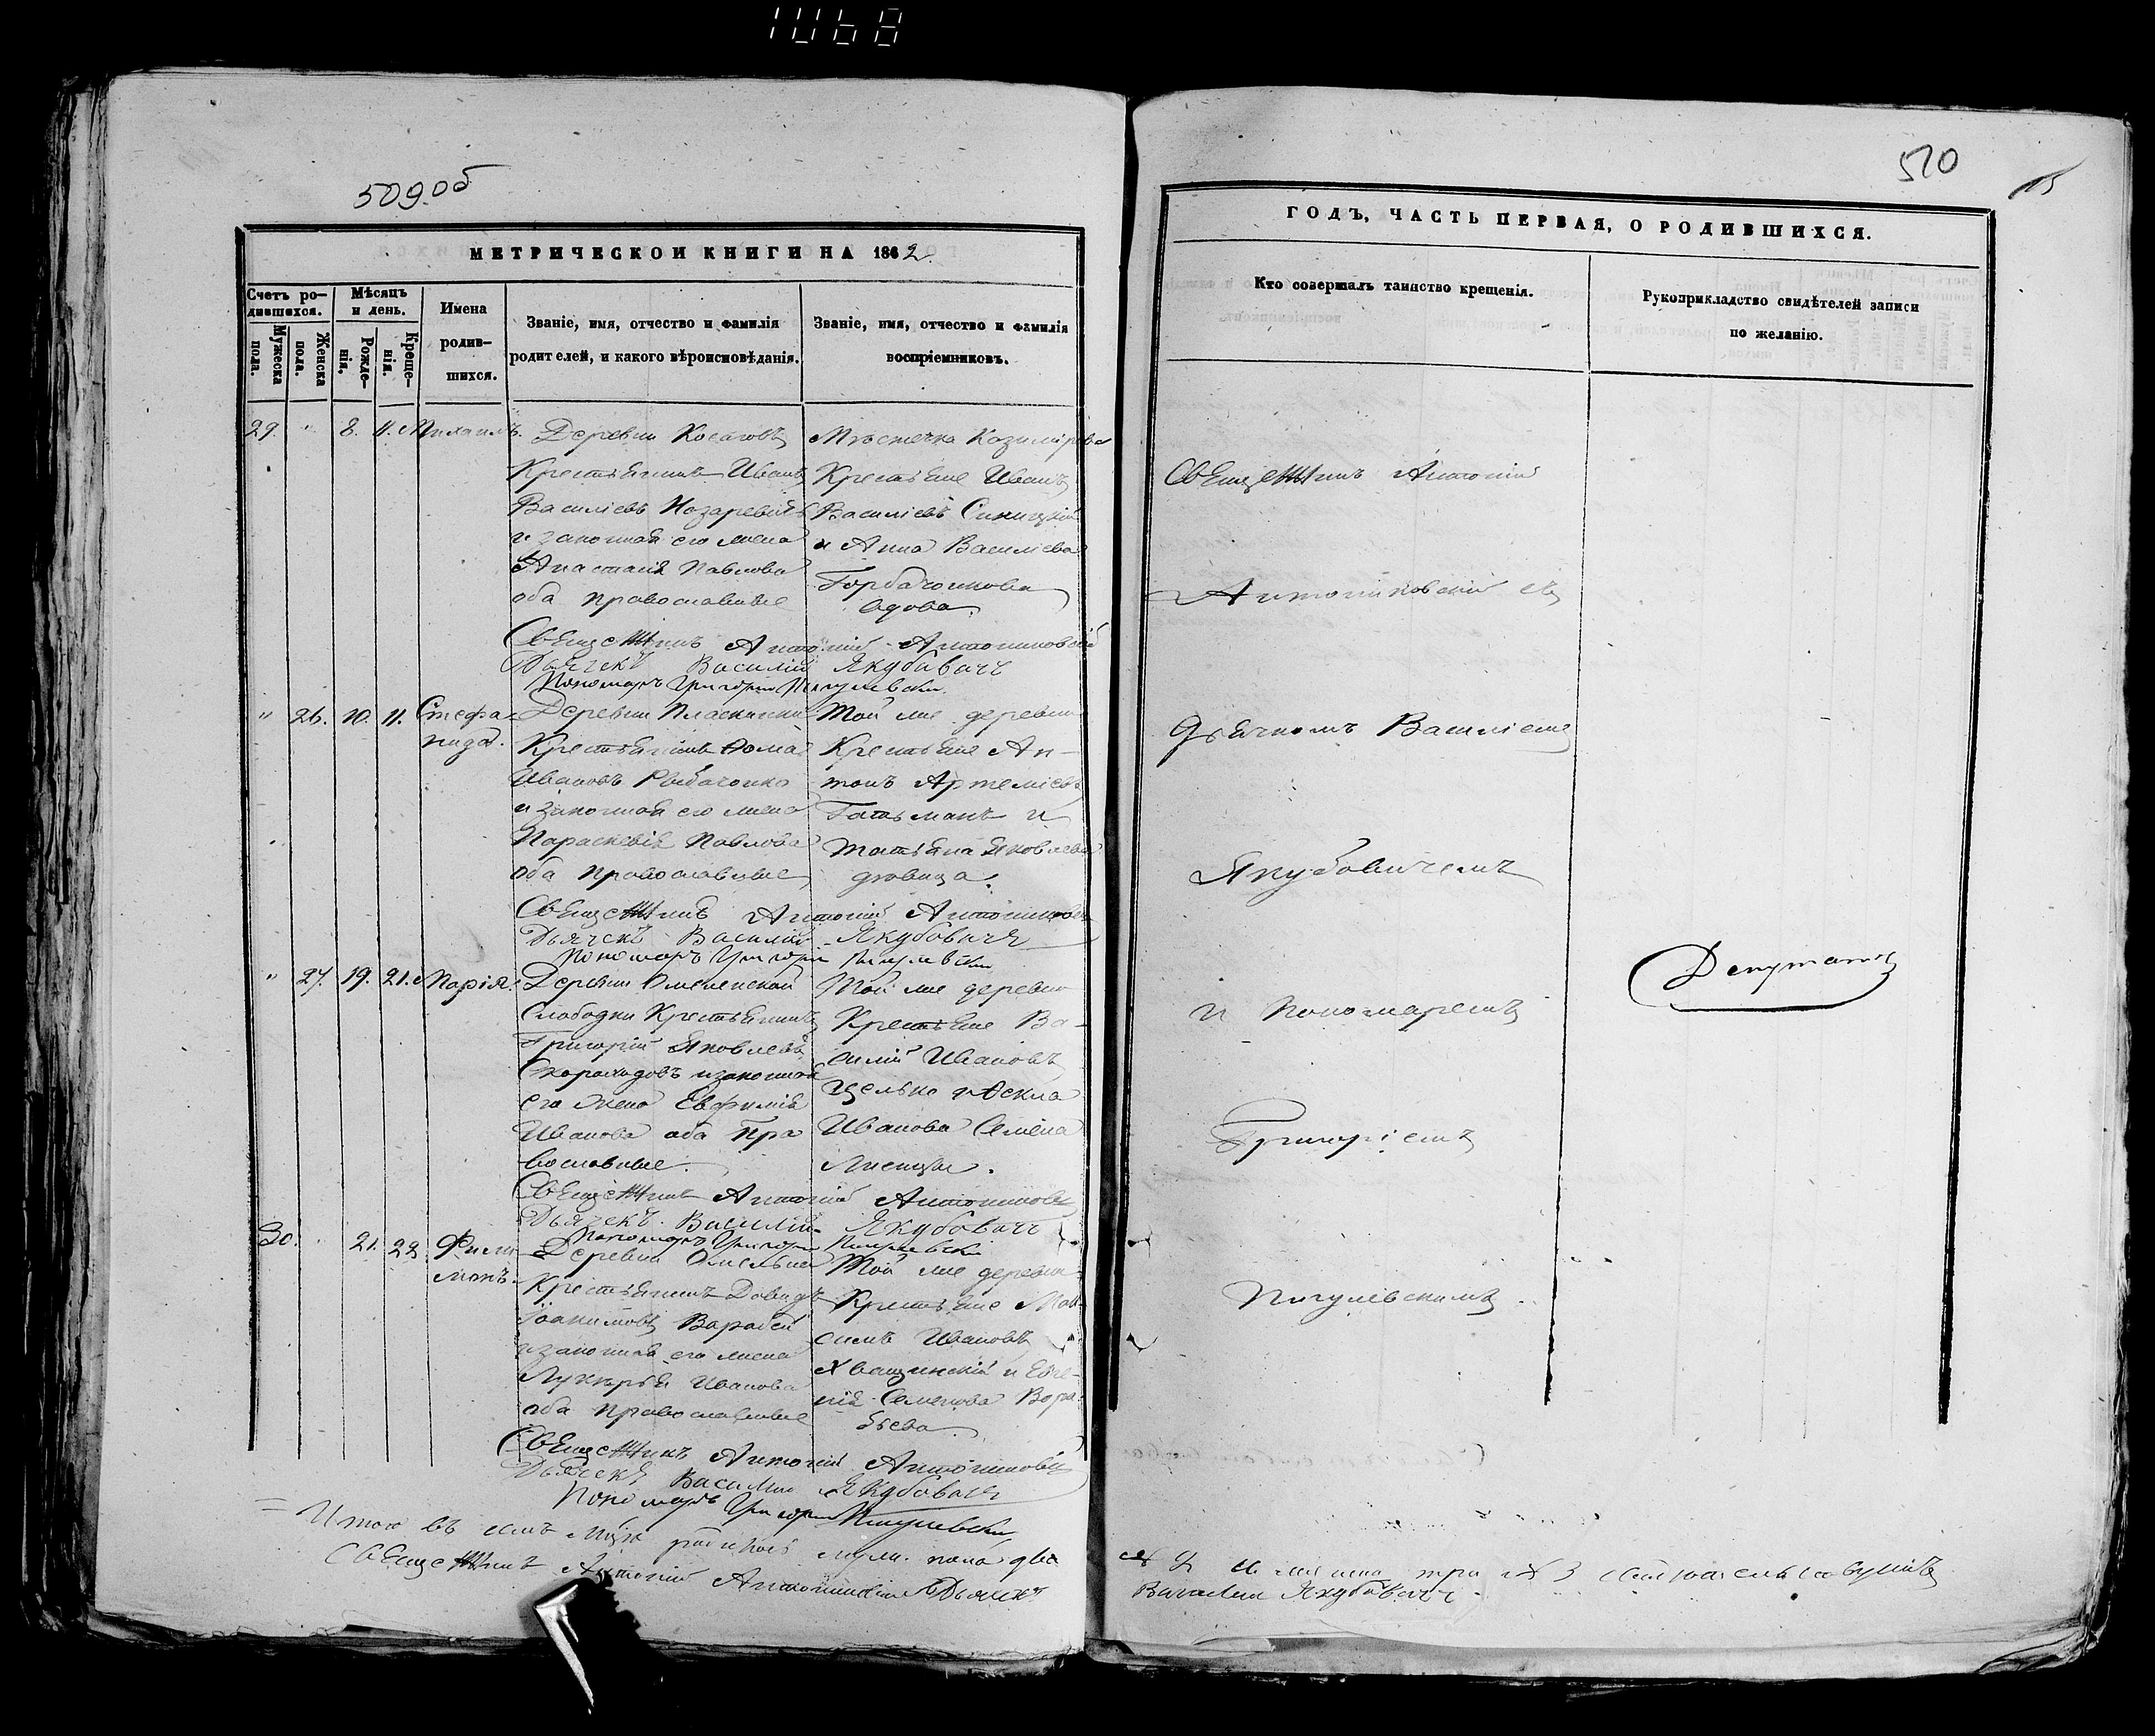 1068
509 об
МЕТРИЧЕСКОЙ КНИГИ НА 1862.
Счетъ ро-
дившихся.
Мѣсяцъ
и день.
Имена
родив-
шихся.
Званіе, имя, отчество и фамилія
родителей, и какого вѣроисповѣданія.
Званіе, имя, отчество и фамилія
воспріемниковъ.
Мужеска
пола.
Женска
пола.
Рожде-
нія.
Креще-
нія.
29. " 8. 11. Михаилъ.
Деревни Косаговъ
Крестьянинъ Иванъ
Василіевъ Назаревичъ
и законная его жена
Анастасія Павлова
оба православные
Мѣстечка Казимірова
Крестьяне Иванъ
Василіевъ Синицкій
и Анна Василіева
Горбачонкова
вдова.
Священникъ Антоній Антониновскій
Дьячекъ Василій Якубовичъ
Пономарь Григорій Пигулевскій
" 26. 10. 11. Стефа-
нида.
Деревни
Крестьянинъ Ѳома
Ивановъ Рыбачонко
и законная его жена
Параскевія Павлова
оба православные
Той же деревни
Крестьяне Ан-
тонъ Артеміевъ
Гатьманъ и
Татьяна Яковлева
дѣвица.
Священникъ Антоній Антониновскій
Дьячекъ Василій Якубовичъ
Пономарь Григорій Пигулевскій
" 27. 19. 21. Марія.
Деревни Омеленской
Слободки Крестьянинъ
Григорій Яковлевъ
Скороходовъ и законная
его жена Евфимія
Иванова оба пра
вославные.
Той же деревни
Крестьяне Ва-
силій Ивановъ
Целько и Ѳекла
Иванова
Священникъ Антоній Антониновскій
Дьячекъ Василій Якубовичъ
Пономарь Григорій Пигулевскій
30. " 21. 22. Фили
монъ.
Деревни Омельна
Крестьянинъ Давидъ
Іоакимовъ Варабей
и законная его жена
Лукерья Иванова
оба православные
Той же деревни
Крестьяне Мак-
симъ Ивановъ
Хващинскій и Евге-
нія Семенова Вора-
бьева.
Священникъ Антоній Антониновскій
Дьячекъ Василій Якубовичъ
Пономарь Григорій Пигулевскій
Итого въ семъ родилось муж. пола два
Священникъ Антоній Антониновскій Дьячекъ
510
ГОДЪ, ЧАСТЬ ПЕРВАЯ, О РОДИВШИХСЯ.
Кто совершалъ таинство крещенія.
Рукоприкладство свидѣтелей записи
по желанію.
Священникъ Антоній
Антониновскій съ
Дьячкомъ Василіемъ
Якубовичемъ
и Пономаремъ
Григоріемъ
Пигулевскимъ.
Депутатъ
три 3
Василій Якубовичъ